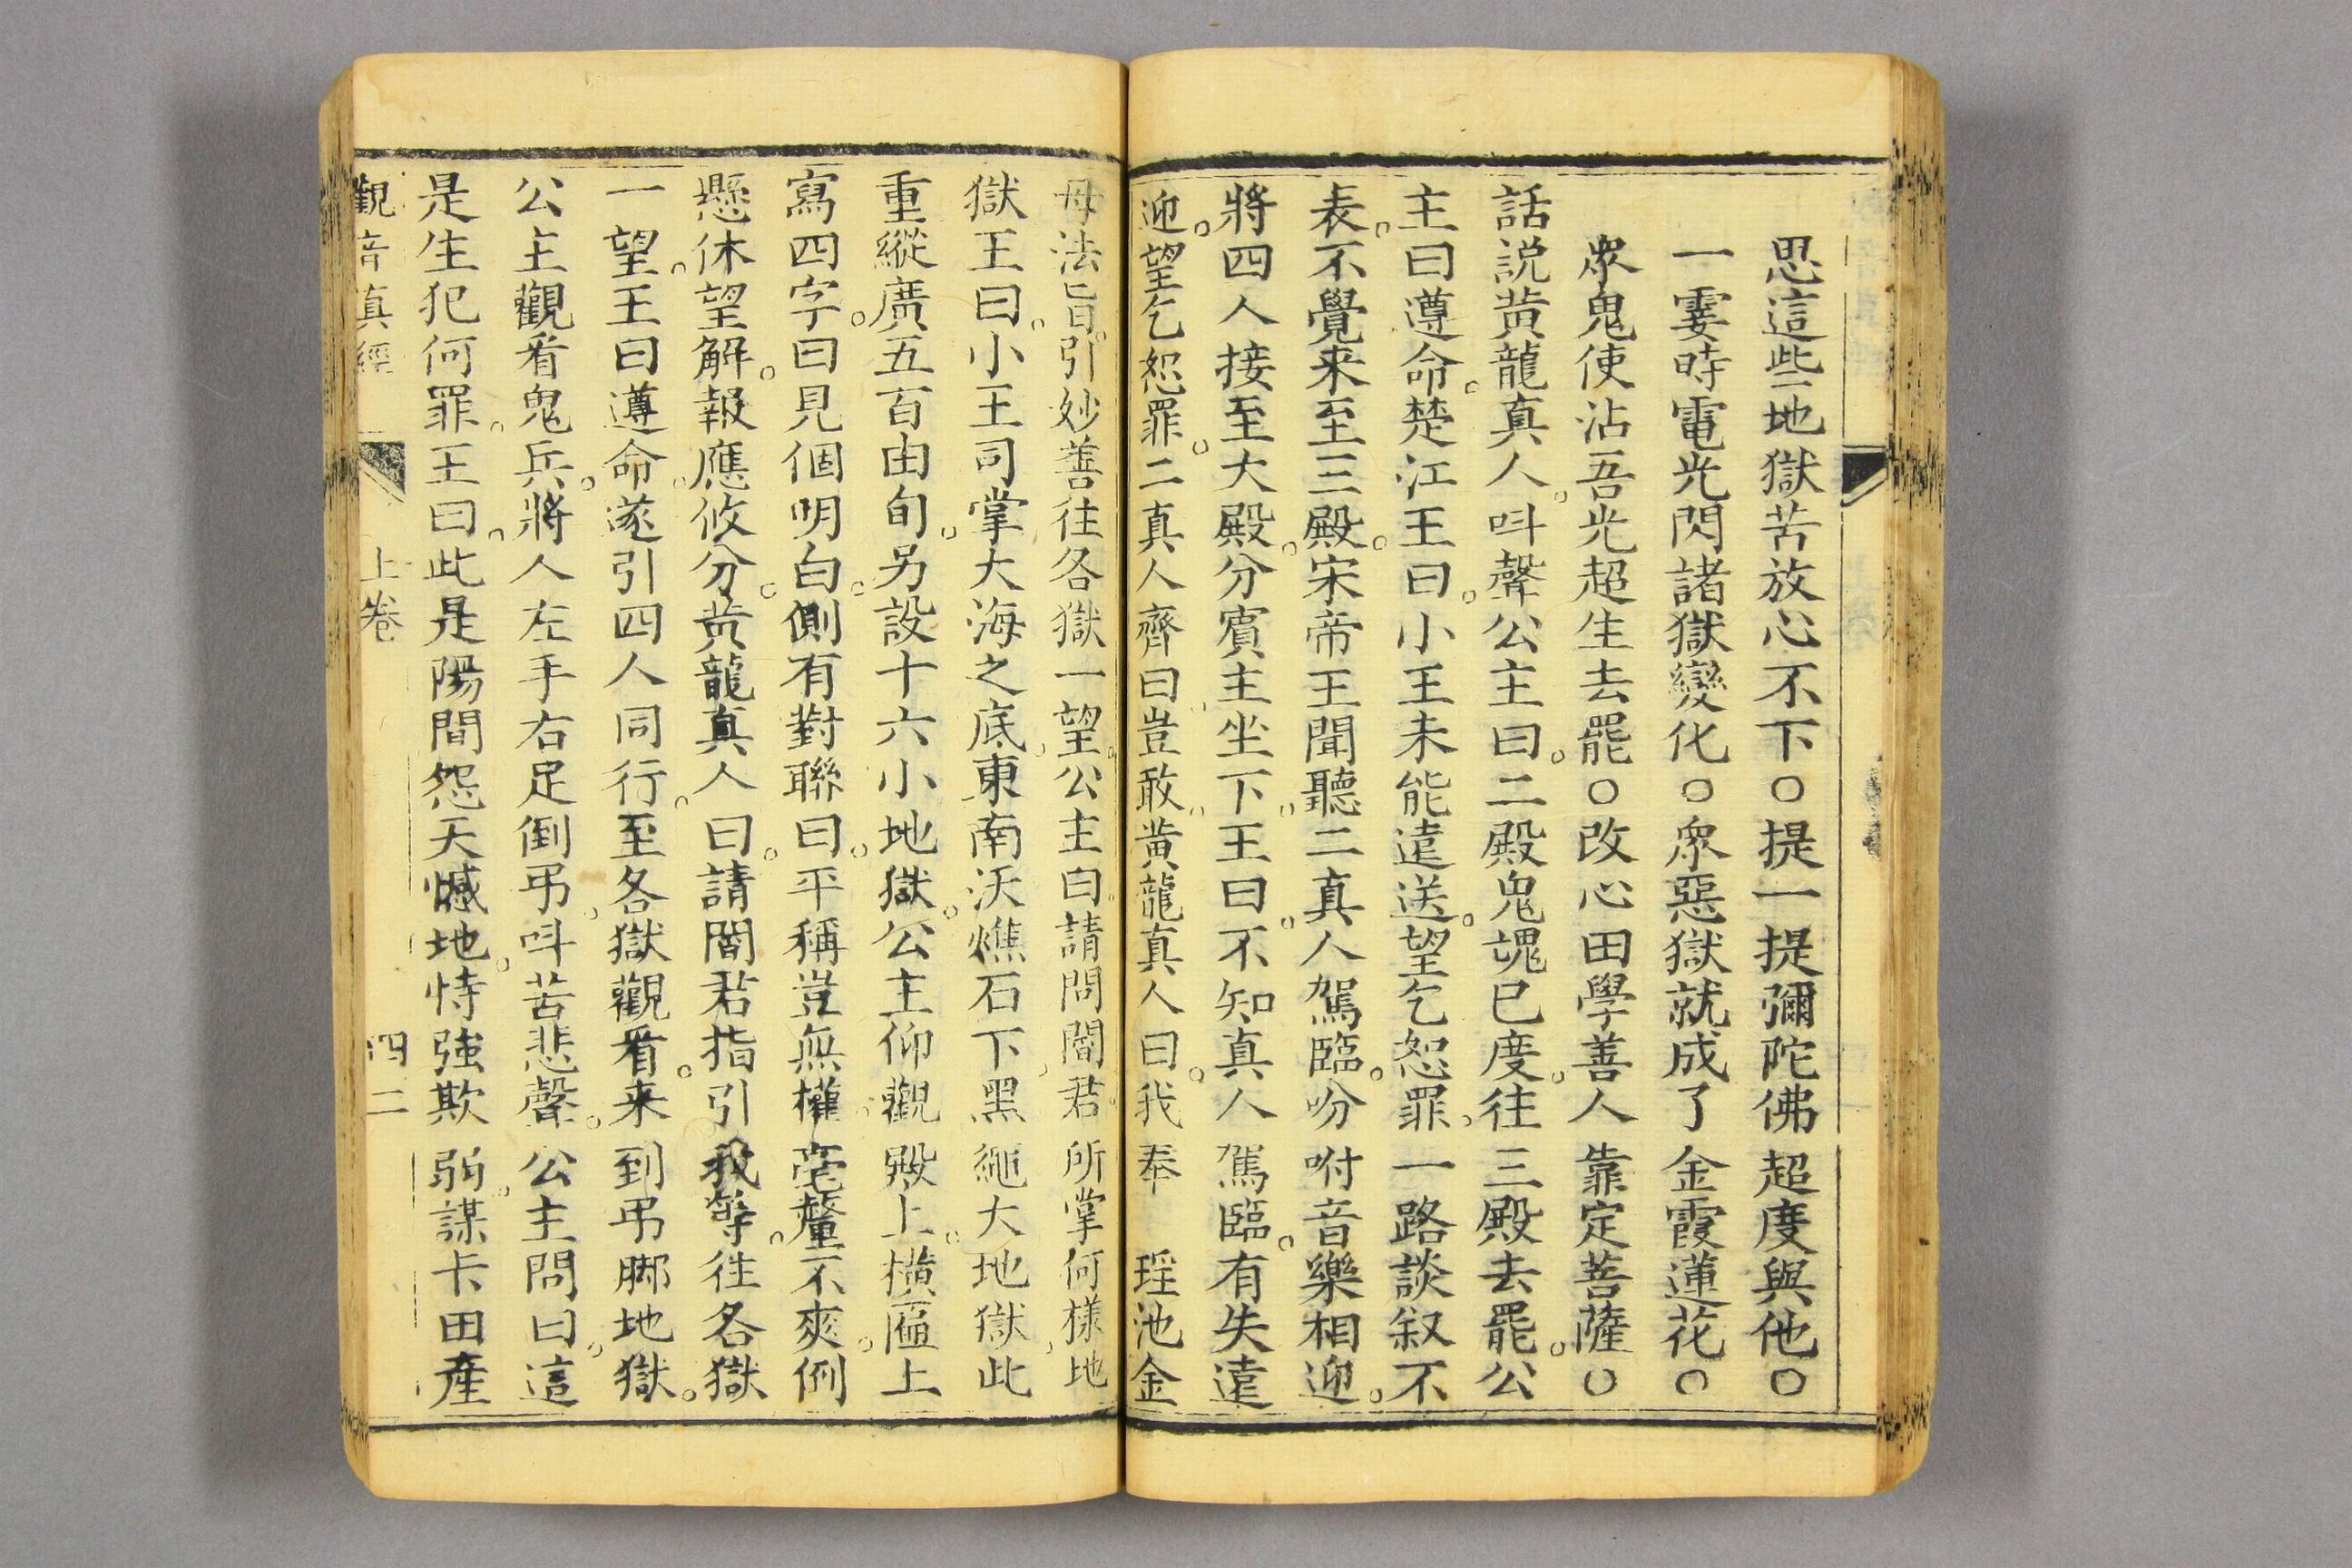 思這些地獄苦放心不下○提一提彌陀佛超度與他○
一霎時電光閃諸獄變化○眾惡獄就成了金霞蓮花○
眾鬼使沾吾光超生去罷○改心田學善人靠定菩薩○
話説黄龍真人。呌聲公主曰。二殿鬼魂已度。往三殿去罷。公
主曰遵命。楚江王曰。小王未能遠送。望乞恕罪。一路談叙不
表。不覺来至三殿。宋帝王聞聽二真人駕臨。吩咐音樂相迎。
將四人接至大殿。分賓主坐下。王曰。不知真人駕臨。有失遠
迎。望乞恕罪。二真人齊曰豈敢。黄龍真人曰。我奉 瑶池金
母法旨。引妙善往各獄一望。公主白。請問閻君。所掌何樣地
獄王曰。小王司掌大海之底。東南沃燋石下。黑繩大地獄。此
重縱廣五百由旬。另設十六小地獄。公主仰觀殿上。横匾上
寫四字。曰見個明白。側有對聯曰。平稱豈無權。毫釐不爽。例
懸休望解。報應攸分。黄龍真人曰。請閻君指引我等。往各獄
一望。王曰遵命。遂引四人同行。至各獄觀看。来到吊脚地獄。
公主觀看鬼兵。將人左手右足倒吊。呌苦悲聲。公主問曰。這
是生犯何罪。王曰。此是陽間怨天憾地。恃強欺弱。謀卡田産
觀音真經 上卷 四二